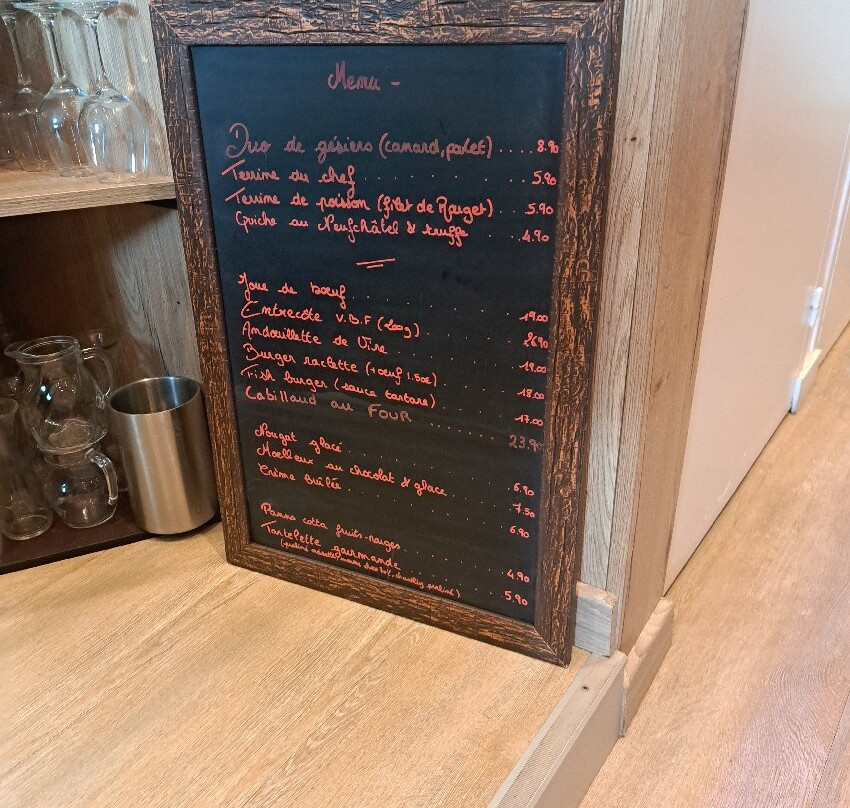 Menu -
Duo de gésiers (canard, poulet) .... 8.90
Terrine du chef ..... 5.90
Terrine de poisson (filet de Rouget) .. 5.90
Quiche au Neufchâtel & truffe ..4.90
Joue de bœuf ..... 19.00
Entrecôte V.B.F (200g) .... 26.90
Andouillette de Vire .... 19.00
Burger raclette (+oeuf 1.50€) .... 18.00
Fish burger (sauce tartare) .... 17.00
Cabillaud au FOUR ..... 23.90
Nougat glacé .... 6.90
Moelleux au chocolat & glace .... 7.50
Crème brûlée .... 6.90
Panna cotta fruits-rouges .... 4.90
Tartelette gourmande .... 5.90
(praliné noisette, praliné)